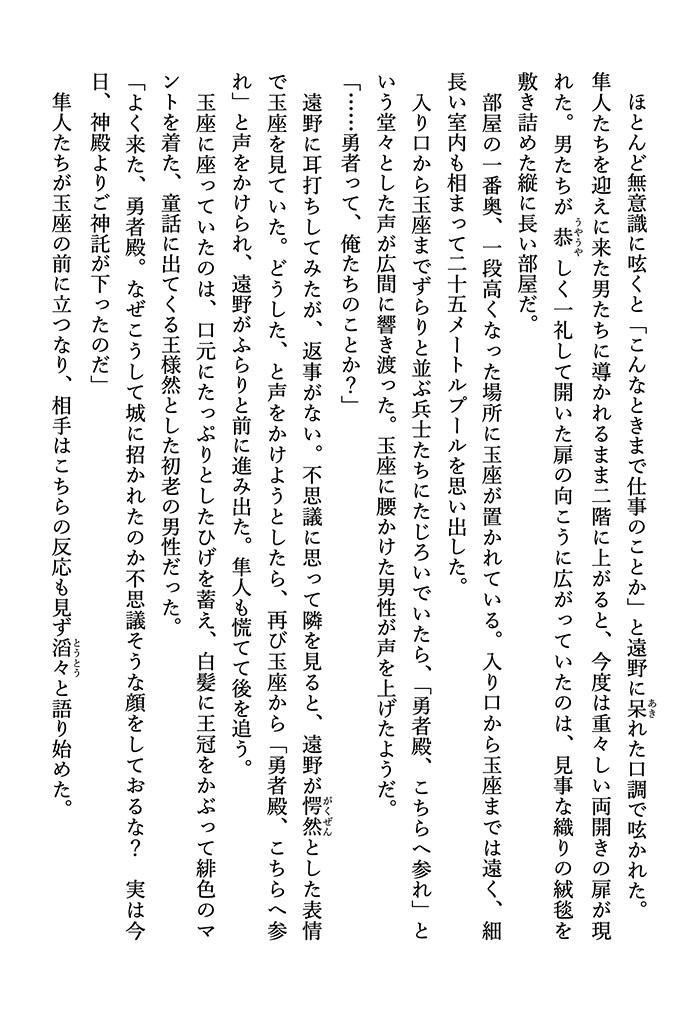 ほとんど無意識に呟くと「こんなときまで仕事のことか」と遠野に呆れた口調で呟かれた。
隼人たちを迎えに来た男たちに導かれるまま二階に上がると、今度は重々しい両開きの扉が現
れた。男たちが恭しく一礼して開いた扉の向こうに広がっていたのは、見事な織りの絨毯を
敷き詰めた縦に長い部屋だ。
部屋の一番奥、一段高くなった場所に玉座が置かれている。入り口から玉座までは遠く、細
長い室内も相まって二十五メートルプールを思い出した。
入り口から玉座までずらりと並ぶ兵士たちにたじろいでいたら、「勇者殿、こちらへ参れ」と
いう堂々とした声が広間に響き渡った。玉座に腰かけた男性が声を上げたようだ。
「……勇者って、俺たちのことか？」
遠野に耳打ちしてみたが、返事がない。不思議に思って隣を見ると、遠野が愕然とした表情
で玉座を見ていた。どうした、と声をかけようとしたら、再び玉座から「勇者殿、こちらへ参
れ」と声をかけられ、遠野がふらりと前に進み出た。隼人も慌てて後を追う。
玉座に座っていたのは、口元にたっぷりとしたひげを蓄え、白髪に王冠をかぶって緋色のマ
ントを着た、童話に出てくる王様然とした初老の男性だった。
「よく来た、勇者殿。なぜこうして城に招かれたのか不思議そうな顔をしておるな？　実は今
日、神殿よりご神託が下ったのだ」
隼人たちが玉座の前に立つなり、相手はこちらの反応も見ず滔々と語り始めた。